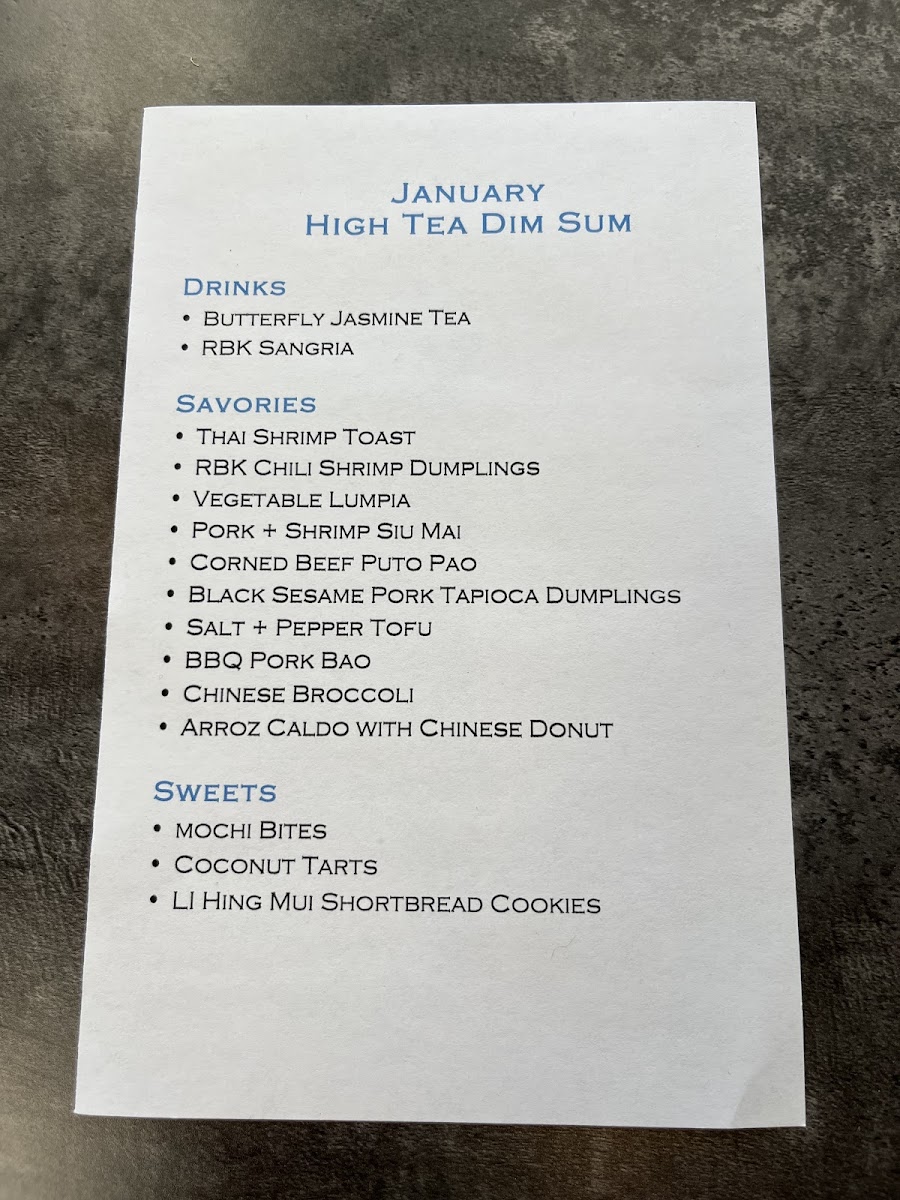 January
High Tea Dim Sum
Drinks
• Butterfly Jasmine Tea
• RBK Sangria
Savories
• Thai Shrimp Toast
• RBK Chili Shrimp Dumplings
• Vegetable Lumpia
• Pork + Shrimp Siu Mai
• Corned Beef Puto Pao
• Black Sesame Pork Tapioca Dumplings
• Salt + Pepper Tofu
• BBQ Pork Bao
• Chinese Broccoli
• Arroz Caldo with Chinese Donut
Sweets
• mochi Bites
• Coconut Tarts
• LI Hing Mui Shortbread Cookies